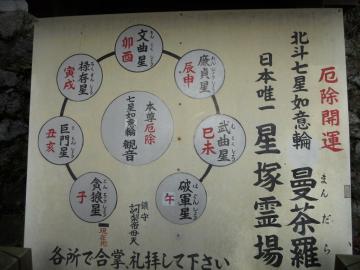 厄除開運
北斗七星如意輪 曼荼羅
まんだら
日本唯一 星塚霊場
廉貞星
辰申
武曲星
巳未
破軍星
午
文曲星
卯酉
本尊厄除
七星如意輪 観音
鎮守
訶梨帝母天
禄存星
寅戌
巨門星
丑亥
貪狼星
子
各所で合掌、礼拝して下さい